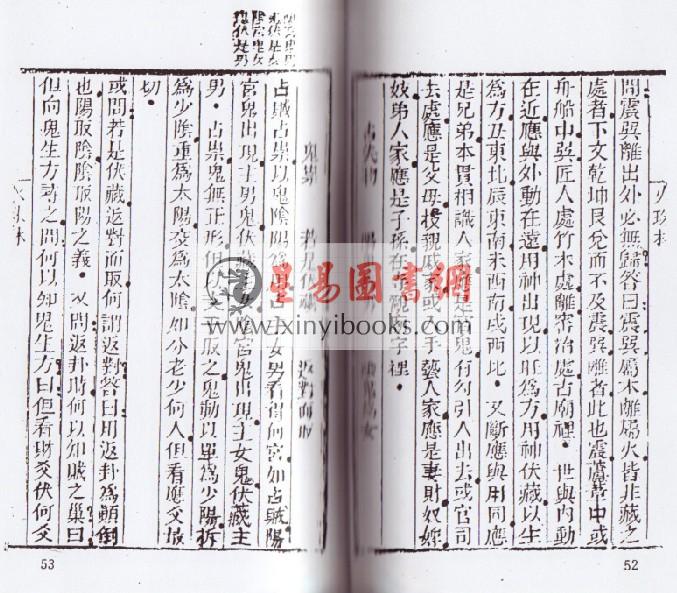 問震巽離出外必無歸答曰震巽屬木離屬火皆非藏之
處者下文乾坤艮兌而不及震巽離者此也震蘆葦中或
舟船中巽匠人處竹木處離窰冶處古廟裡。世與內動
在近應與外動在遠用神出現以旺為方用神伏藏以生
為方丑東北辰東南未西南戌西北。又斷應與用同應
是兄弟本貫相識人家應是官鬼有勾引人出去或官司
去處應是父母投親戚家或手藝人家應是妻財奴婢
妓弟人家應是子孫在寺院廟宇裡。
占賊占祟以鬼陰陽為占女男看得何宮如占賊陽
宮鬼出現主男鬼伏藏 宮鬼出現主女鬼伏藏主
男。占祟鬼無正形但 交 取之鬼動以單為少陽拆
為少陰重為太陽交為太陰如小老少何人但看應爻最
切。
或問若是伏藏返對而取何謂返對答曰用返卦為顛倒
也陽取陰陰取陽之義。又問返卦財何以知賊之巢曰
但向鬼生方尋之問何以知鬼生方曰但看財爻伏何爻
星易圖書網
www.xinyibooks.com
53
52